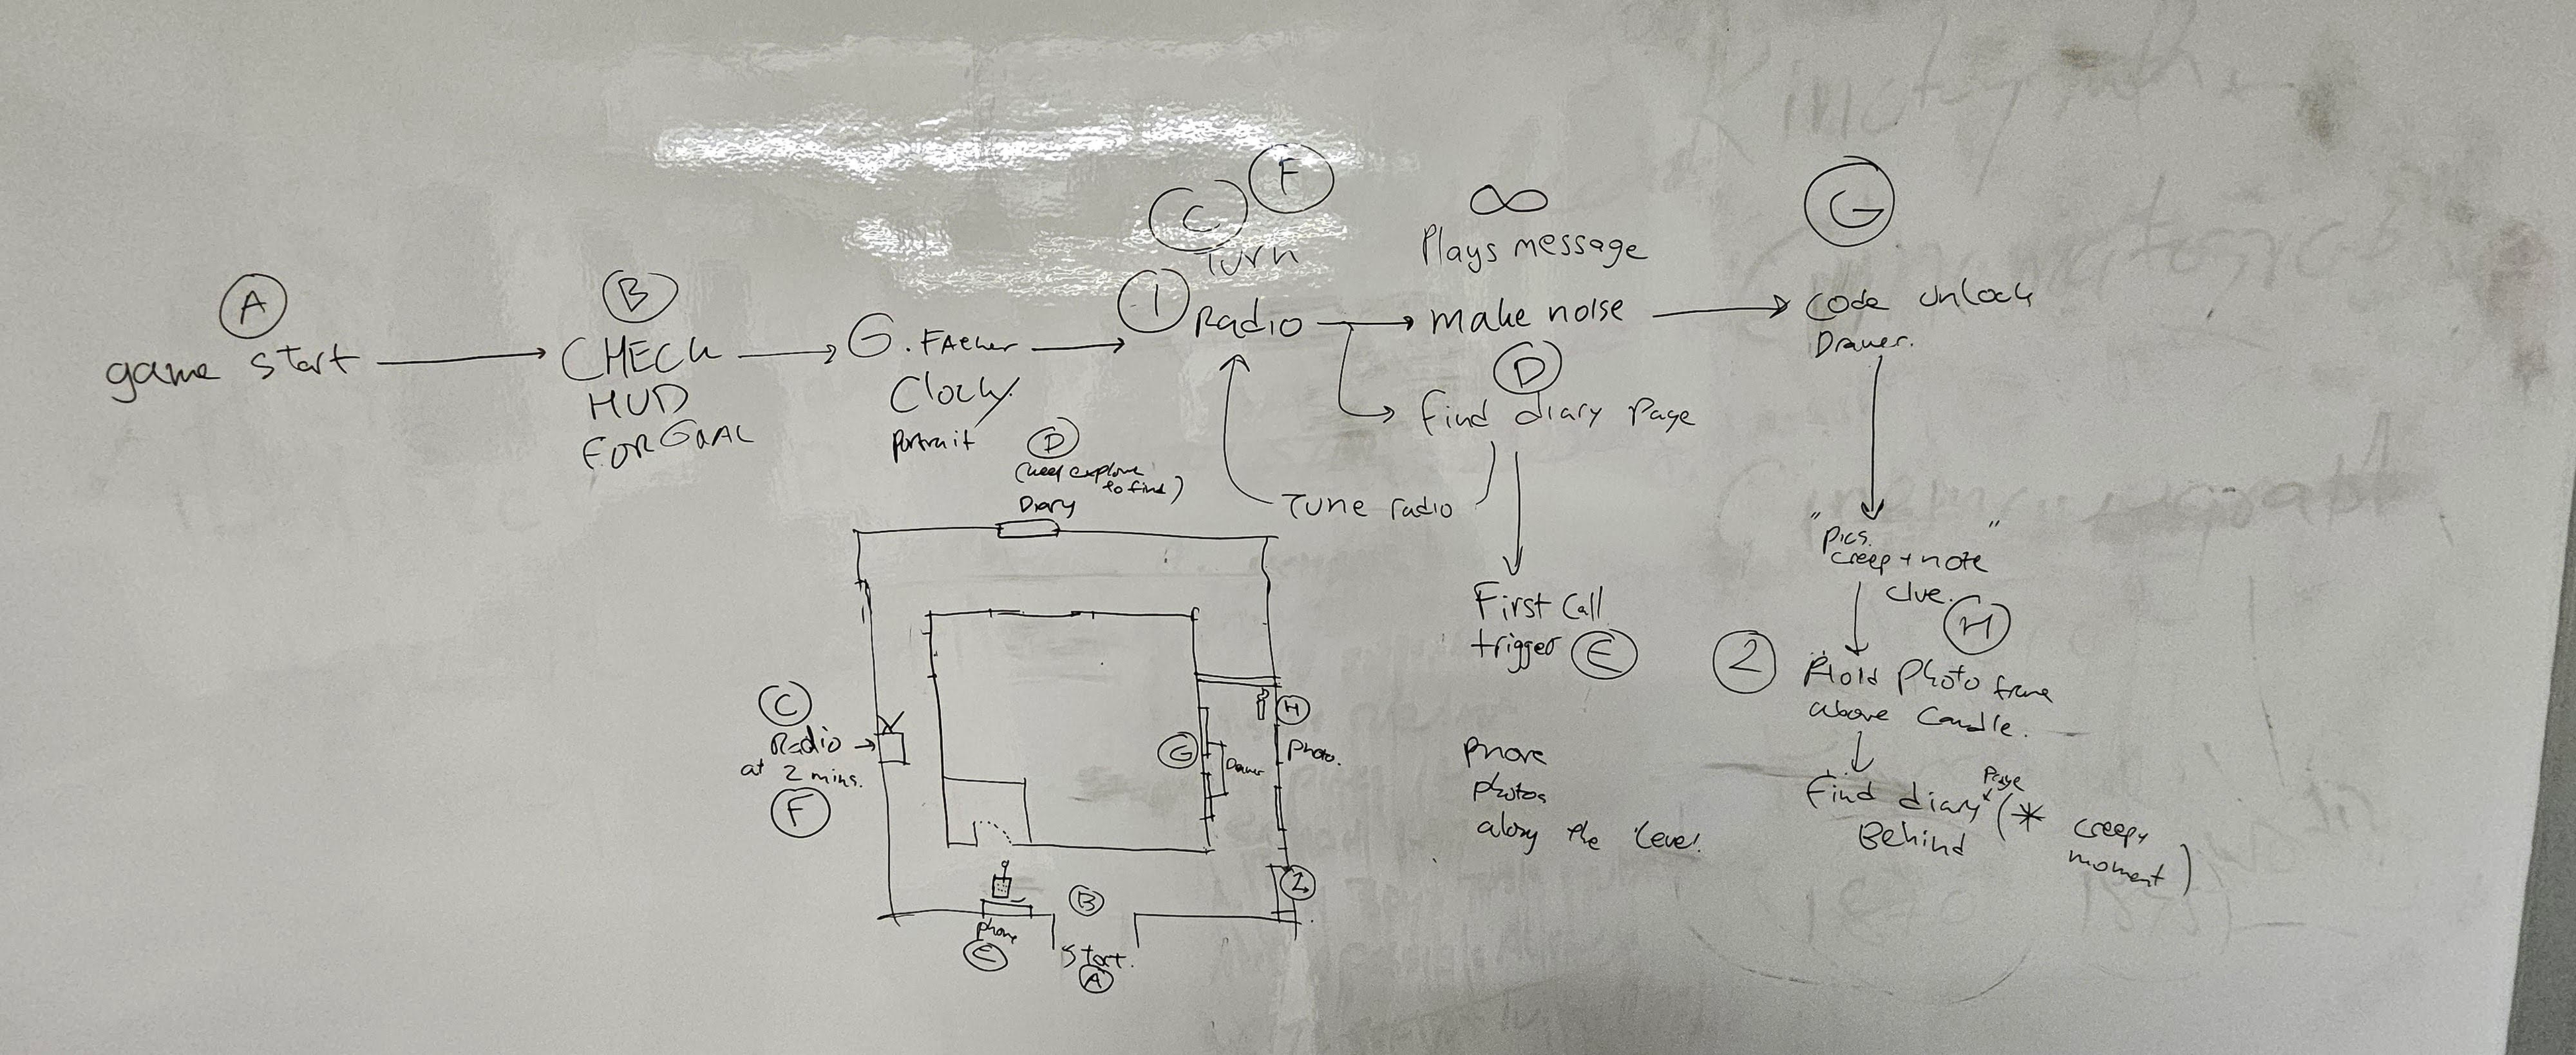 A
game start
B
CHECK
HUD
FOR GOAL
G. FAther
Clock/
Portrait
C
F
Turn
1
Radio
∞
Plays message
make noise
D
Find diary Page
Tune radio
First Call
trigger E
G
Code Unlock
Drawer.
"Pics.
creep + note"
clue.
H
2
Hold Photo frame
above Candle.
Find diary Page
Behind
(* creepy
moment)
Phone
photos
along the level.
D
(need explore
to find)
Diary
C
Radio
at 2 mins.
F
G
Drawer
H
Photo.
2
B
Phone
E
Start.
A